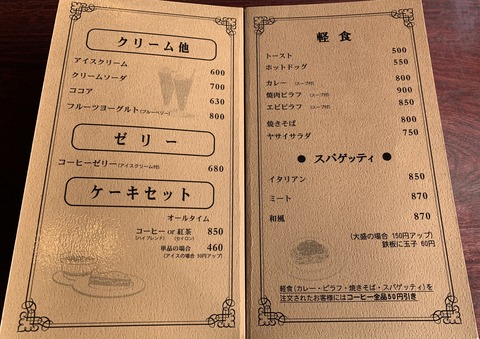 クリーム他
アイスクリーム 600
クリームソーダ 700
ココア 630
フルーツヨーグルト(ブルーベリー) 800
ゼリー
コーヒーゼリー(アイスクリーム付) 680
ケーキセット
オールタイム
コーヒー or 紅茶 850
(ハイブレンド) (セイロン)
単品の場合 460
(アイスの場合 50円アップ)
軽食
トースト 500
ホットドッグ 550
カレー (スープ付) 800
焼肉ピラフ (スープ付) 900
エビピラフ (スープ付) 850
焼きそば 800
ヤサイサラダ 750
● スパゲッティ ●
イタリアン 850
ミート 870
和風 870
(大盛の場合 150円アップ)
鉄板に玉子 60円
軽食(カレー・ピラフ・焼きそば・スパゲッティ)を
注文されたお客様にはコーヒー全品50円引き